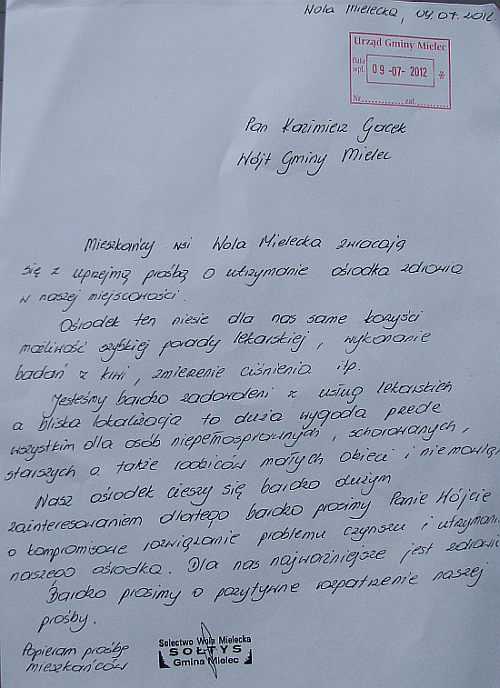 Wola Mielecka, 09.07.2012
Urząd Gminy Mielec
Data
wpł. 09-07-2012 *
Nr............zał............
Pan Kazimierz Gacek
Wójt Gminy Mielec
Mieszkańcy wsi Wola Mielecka zwracają
się z uprzejmą prośbą o utrzymanie ośrodka zdrowia
w naszej miejscowości.
Ośrodek ten niesie dla nas same korzyści
możliwość szybkiej porady lekarskiej, wykonanie
badań z krwi, zmierzenie ciśnienia itp.
Jesteśmy bardzo zadowoleni z usług lekarskich
a bliska lokalizacja to duża wygoda przede
wszystkim dla osób niepełnosprawnych, schorowanych,
starszych a także rodziców małych dzieci i niemowląt
Nasz ośrodek cieszy się bardzo dużym
zainteresowaniem dlatego bardzo prosimy Panie Wójcie
o kompromisowe rozwiązanie problemu czynszu i utrzymania
naszego ośrodka. Dla nas najważniejsze jest zdrowie
Bardzo prosimy o pozytywne rozpatrzenie naszej
prośby.
Popieram prośbę
mieszkańców
Sołectwo Wola Mielecka
SOŁTYS
Gmina Mielec